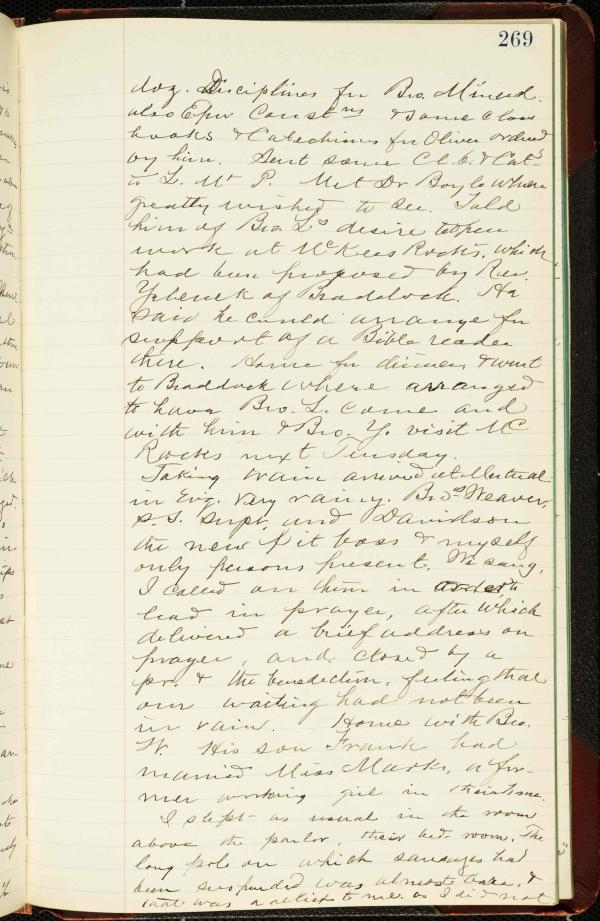 269
doz. Disciplines for Bro. Mincid.
also Epw Const.ns & some class
books & Catechisms for Oliver ordered
by him. Sent some Cl. b. & Cat.s
to L. Mt P. Met Dr Boyle whom
greatly wished to see. Told
him of Bro L's desire to open
work at McKees Rocks, which
had been proposed by Rev.
of Braddock. He
said he could arrange for
support of a Bible reader
there. Home for dinner & went
to Braddock where arranged
to have Bro. L. come and
with him & Bro. Y. visit Mc
Rocks next Tuesday.
Taking train arrived at Mutual
in Evg. Very rainy. Bros Weaver,
S.S. Supt. and Davidson
the new pit boss & myself
only persons present. We sang,
I called on them in order to
lead in prayer, after which
delivered a brief address on
prayer, and closed by a
pr. & the benediction, feeling that
our waiting had not been
in vain. Home with Bro.
W. His son Frank had
married Miss Marks, a for-
mer working girl in their home.
I slept as usual in the room
above the parlor, their bed room. The
long pole on which sausages had
been suspended was almost bare, &
that was a relief to me as I did not